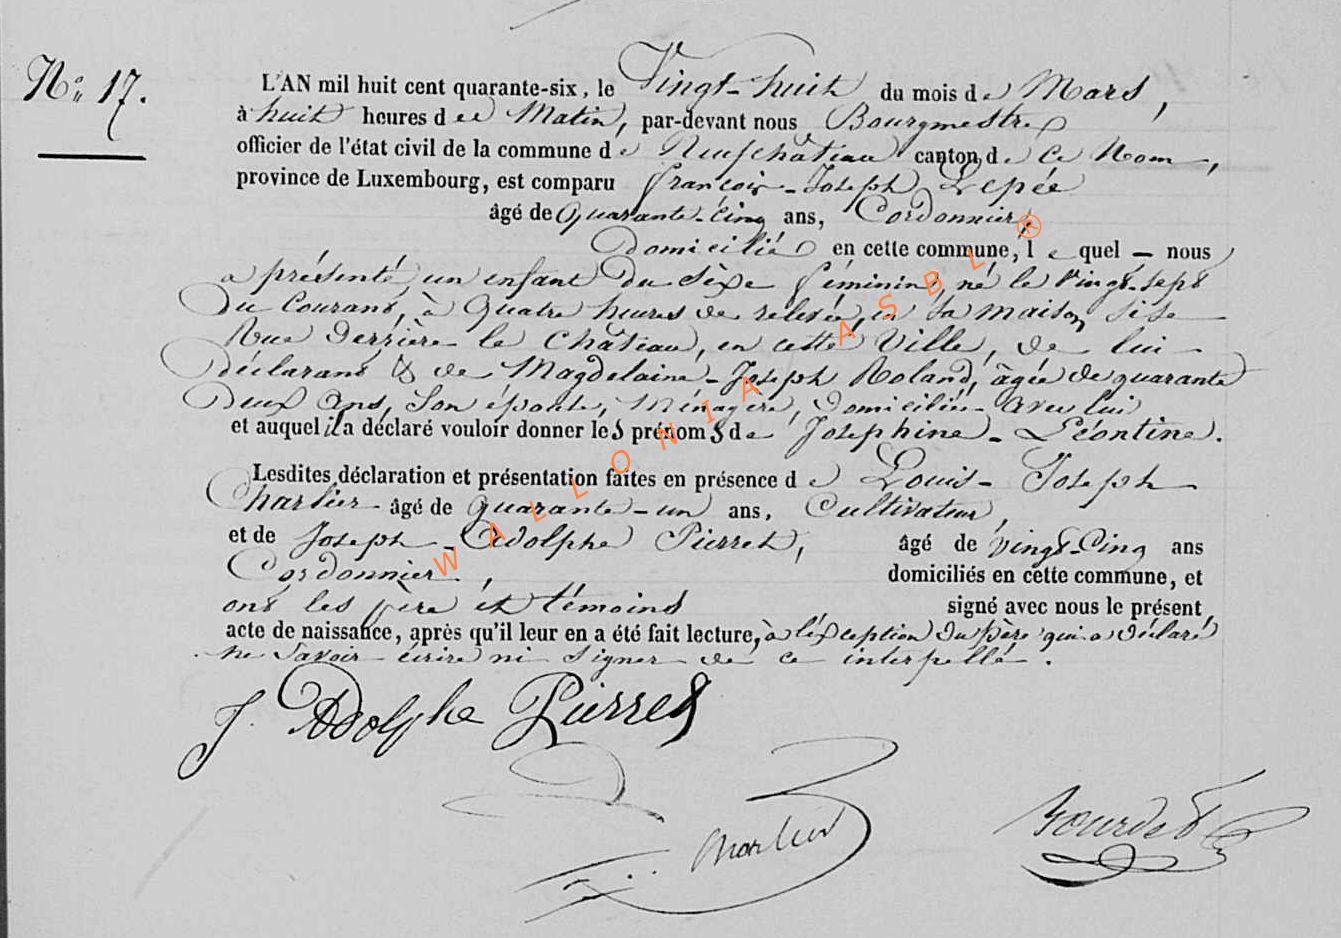 N° 17.
L'AN mil huit cent quarante-six, le Vingt-huit du mois de Mars,
à huit heures de Matin, par-devant nous Bourgmestre
officier de l'état civil de la commune de Neufchâteau canton de Ce Nom,
province de Luxembourg, est comparu françois-Joseph Lepée
âgé de Quarante-Cinq ans, Cordonnier,
Domicilié en cette commune, le quel — nous
a présenté un enfant Du Sèxe féminin né le Vingt-Sept
Du Courant, à Quatre heures de relevée, en Sa maison Sise
Rue Derrière le Château, en cette Ville, de lui
Déclarant & de Magdelaine-Joseph Roland, âgée de quarante
Deux Ans, Son épouse, Ménagère, Domiciliée avec lui
et auquel il a déclaré vouloir donner les prénoms de Joséphine-Léontine.
Lesdites déclaration et présentation faites en présence de Louis-Joseph
Charlier âgé de Quarante-un ans, Cultivateur,
et de Joseph-Adolphe Pierret, âgé de vingt-Cinq ans
Cordonnier, domiciliés en cette commune, et
ont les père et témoins signé avec nous le présent
acte de naissance, après qu'il leur en a été fait lecture, à l'éxception Du père qui a déclaré
ne Savoir écrire ni Signer de ce interpellé.
J. Adolphe Pierret
Charlier
WALLONIA ASBL ®